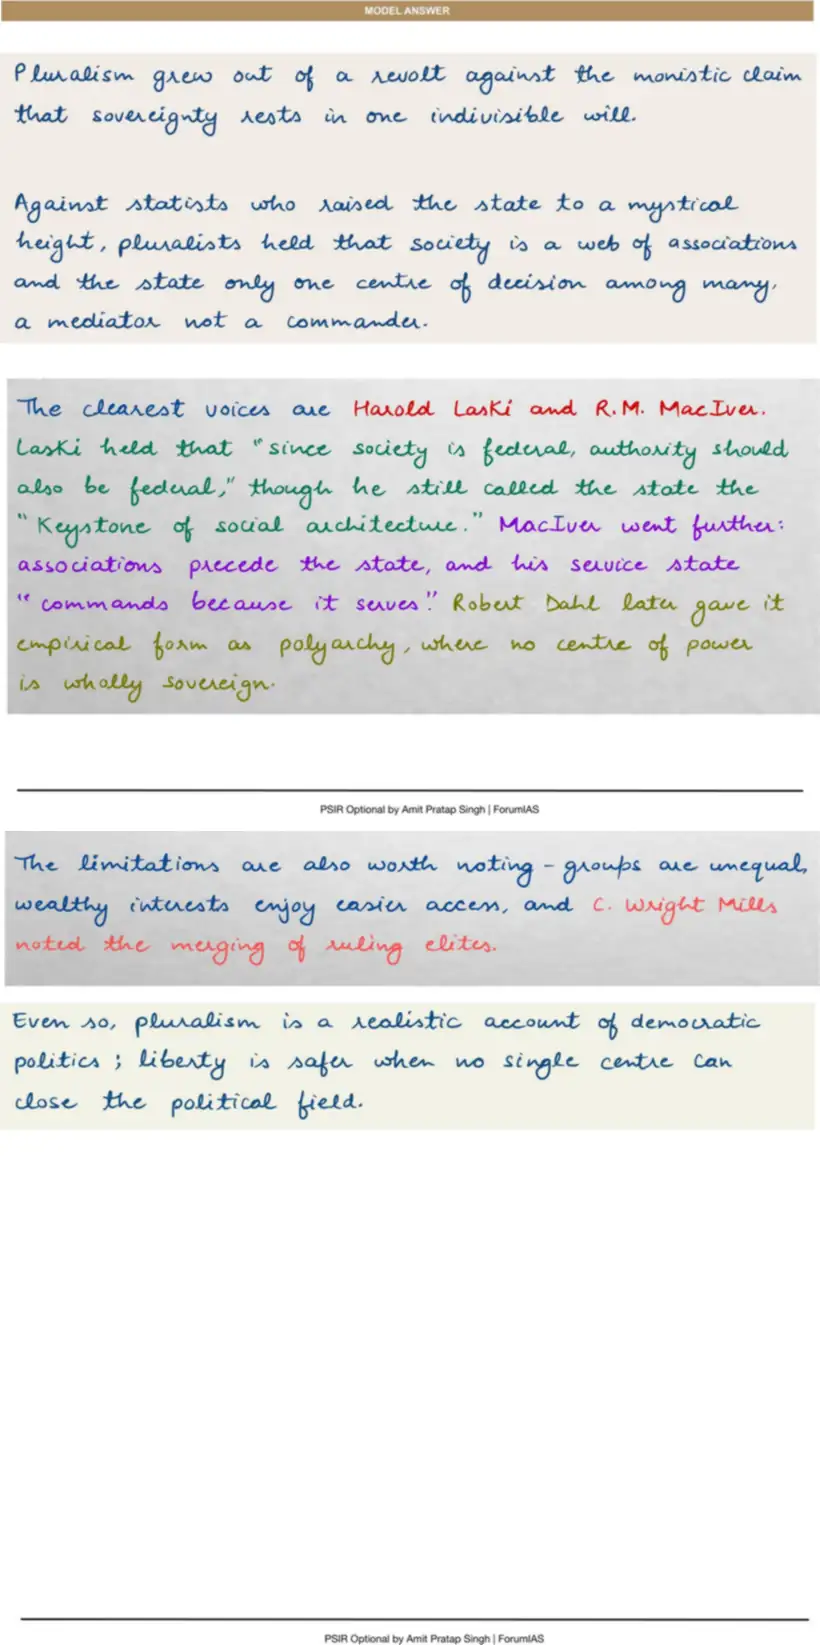 MODEL ANSWER
Pluralism grew out of a revolt against the monistic claim
that sovereignty rests in one indivisible will.
Against statists who raised the state to a mystical
height, pluralists held that society is a web of associations
and the state only one centre of decision among many,
a mediator not a commander.
The clearest voices are Harold Laski and R.M. MacIver.
Laski held that "since society is federal, authority should
also be federal," though he still called the state the
"Keystone of social architecture." MacIver went further:
associations precede the state, and his service state
"commands because it serves". Robert Dahl later gave it
empirical form as polyarchy, where no centre of power
is wholly sovereign.
PSIR Optional by Amit Pratap Singh | ForumIAS
The limitations are also worth noting - groups are unequal,
wealthy interests enjoy easier access, and C. Wright Mills
noted the merging of ruling elites.
Even so, pluralism is a realistic account of democratic
politics; liberty is safer when no single centre can
close the political field.
PSIR Optional by Amit Pratap Singh | ForumIAS